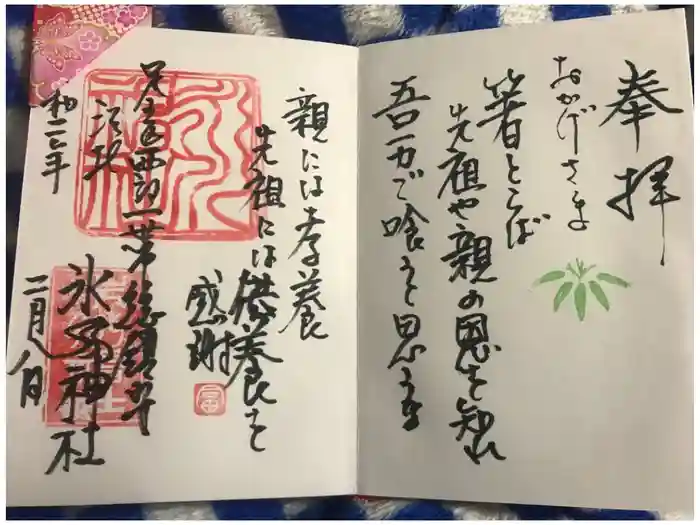 奉拝
おかげさま
箸とらば
先祖や親の恩を知れ
吾一力で喰うと思うな
親には孝養
先祖には供養を
感謝
足立区西部一帯総鎮守
江北
氷川神社
和二年
二月八日